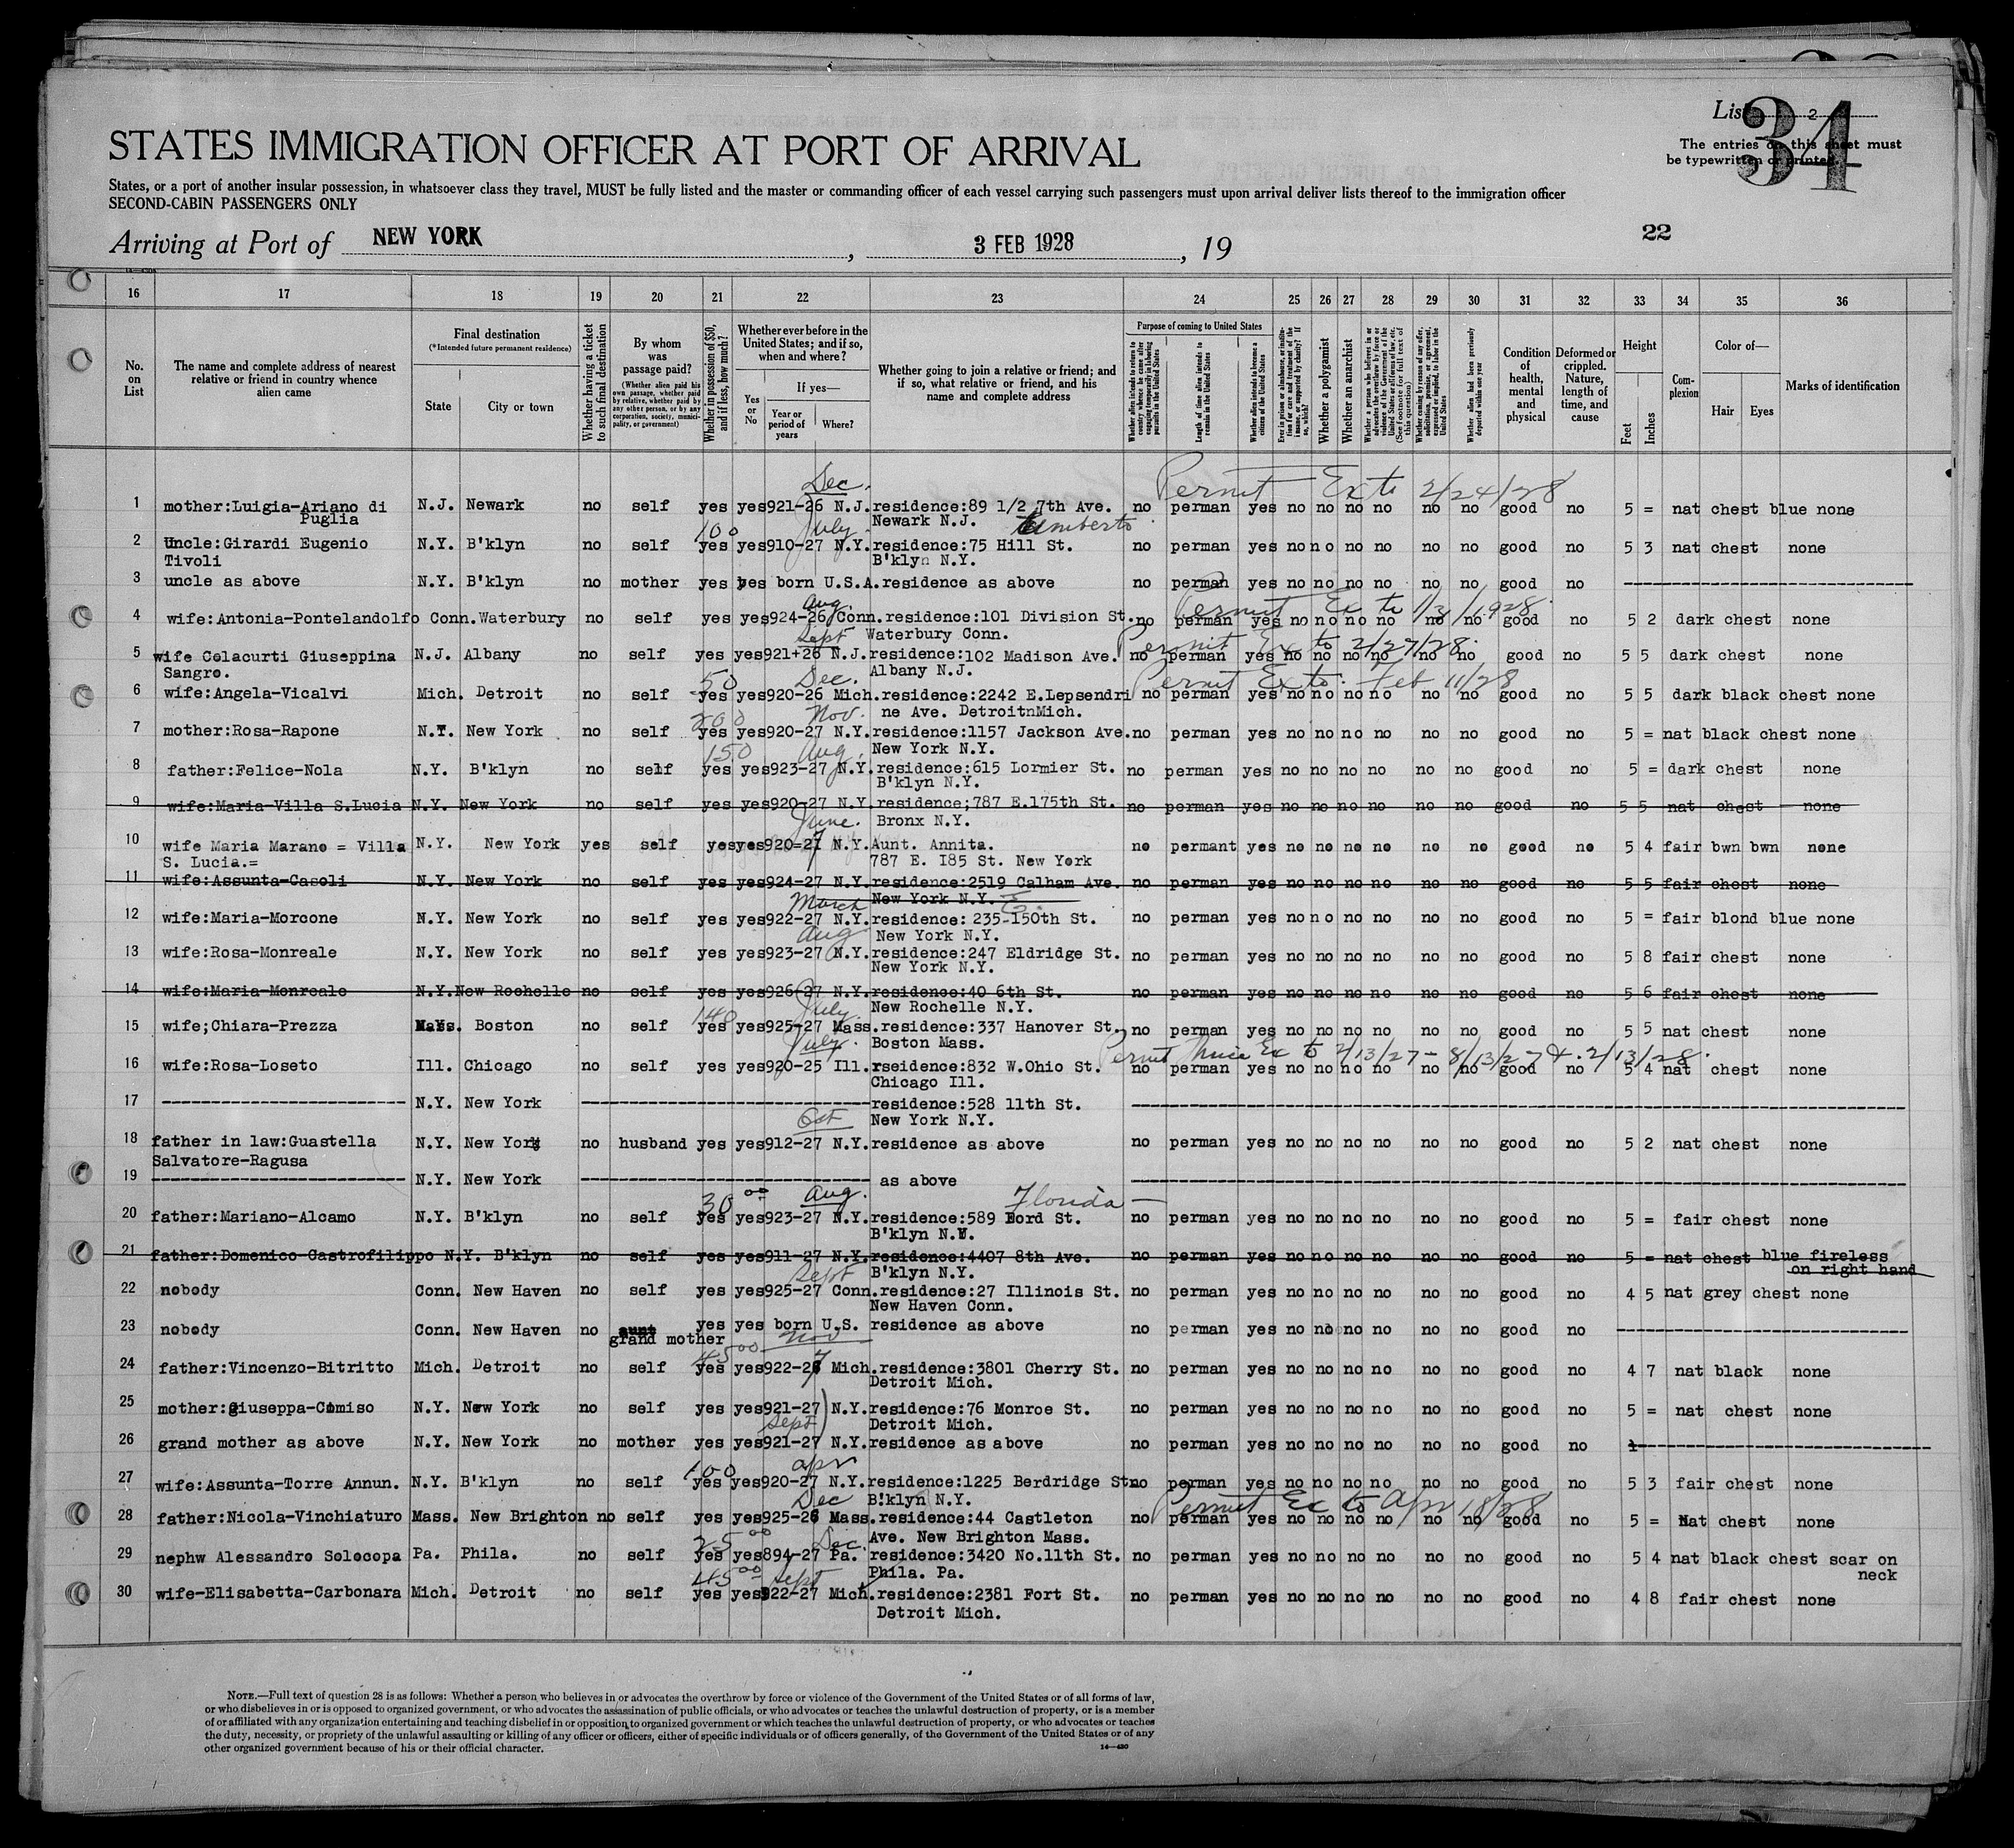 List 2
34
The entries on this sheet must
be typewritten or printed.
STATES IMMIGRATION OFFICER AT PORT OF ARRIVAL
States, or a port of another insular possession, in whatsoever class they travel, MUST be fully listed and the master or commanding officer of each vessel carrying such passengers must upon arrival deliver lists thereof to the immigration officer
SECOND-CABIN PASSENGERS ONLY
Arriving at Port of NEW YORK , 3 FEB 1928 , 19
22
16 17 18 19 20 21 22 23 24 25 26 27 28 29 30 31 32 33 34 35 36
No. on List
The name and complete address of nearest relative or friend in country whence alien came
Final destination
(*Intended future permanent residence)
State City or town
Whether having a ticket to such final destination
By whom was passage paid?
(Whether alien paid his own passage, whether paid by relative, whether paid by any other person, or by any corporation, society, municipality, or government)
Whether in possession of $50, and if less, how much?
Whether ever before in the United States; and if so, when and where?
Yes or No
If yes—
Year or period of years
Where?
Whether going to join a relative or friend; and if so, what relative or friend, and his name and complete address
Purpose of coming to United States
Whether alien intends to return to country whence he came after engaging temporarily in laboring pursuits in the United States
Length of time alien intends to remain in the United States
Whether alien intends to become a citizen of the United States
Ever in prison or almshouse, or institution for care and treatment of the insane, or supported by charity? If so, which?
Whether a polygamist
Whether an anarchist
Whether a person who believes in or advocates the overthrow by force or violence of the Government of the United States or all forms of law, etc. (See footnote for full text of this question)
Whether coming by reason of any offer, solicitation, promise, or agreement, expressed or implied, to labor in the United States
Whether alien had been previously deported within one year
Condition of health, mental and physical
Deformed or crippled. Nature, length of time, and cause
Height
Feet Inches
Complexion
Color of—
Hair Eyes
Marks of identification
Dec. Permit Ex to 2/24/28
1 mother:Luigia-Ariano di N.J. Newark no self yes yes921-26 N.J. residence:89 1/2 7th Ave. no perman yes no no no no no no good no 5 = nat chest blue none
Puglia Newark N.J.
100 July Umberto
2 Uncle:Girardi Eugenio N.Y. B'klyn no self yes yes910-27 N.Y. residence:75 Hill St. no perman yes no no no no no no good no 5 3 nat chest none
Tivoli B'klyn N.Y.
3 uncle as above N.Y. B'klyn no mother yes yes born U.S.A. residence as above no perman yes no no no no no no good no
Aug. Permit Ex to 1/31/1928.
4 wife:Antonia-Pontelandolfo Conn. Waterbury no self yes yes924-26 Conn. residence:101 Division St. no perman yes no no no no no no good no 5 2 dark chest none
Sept Waterbury Conn.
Permit Ex to 2/27/28.
5 wife Colacurti Giuseppina N.J. Albany no self yes yes921+26 N.J. residence:102 Madison Ave. no perman yes no no no no no no good no 5 5 dark chest none
Sangro. Albany N.J.
50 Dec. Permit Ex to. Feb 11/28
6 wife:Angela-Vicalvi Mich. Detroit no self yes yes920-26 Mich. residence:2242 E.Lepsendri no perman yes no no no no no no good no 5 5 dark black chest none
ne Ave. DetroitnMich.
200 Nov.
7 mother:Rosa-Rapone N.Y. New York no self yes yes920-27 N.Y. residence:1157 Jackson Ave. no perman yes no no no no no no good no 5 = nat black chest none
New York N.Y.
150 Aug.
8 father:Felice-Nola N.Y. B'klyn no self yes yes923-27 N.Y. residence:615 Lormier St. no perman yes no no no no no no good no 5 = dark chest none
B'klyn N.Y.
9 wife:Maria-Villa S.Lucia N.Y. New York no self yes yes920-27 N.Y. residence:787 E.175th St. no perman yes no no no no no no good no 5 5 nat chest none
Bronx N.Y.
June.
10 wife Maria Marano = Villa N.Y. New York yes self yes yes920=27 N.Y. Aunt. Annita. no permant yes no no no no no no good no 5 4 fair bwn bwn none
S. Lucia.= 787 E. I85 St. New York
11 wife:Assunta-Casoli N.Y. New York no self yes yes924-27 N.Y. residence:2519 Calham Ave. no perman yes no no no no no no good no 5 5 fair chest none
New York N.Y.
March
12 wife:Maria-Morcone N.Y. New York no self yes yes922-27 N.Y. residence: 235-150th St. no perman yes no no no no no no good no 5 = fair blond blue none
New York N.Y.
Aug
13 wife:Rosa-Monreale N.Y. New York no self yes yes923-27 N.Y. residence:247 Eldridge St. no perman yes no no no no no no good no 5 8 fair chest none
New York N.Y.
14 wife:Maria-Monreale N.Y. New Rochelle no self yes yes926-27 N.Y. residence:40 6th St. no perman yes no no no no no no good no 5 6 fair chest none
New Rochelle N.Y.
140 July.
15 wife;Chiara-Prezza Mass. Boston no self yes yes925-27 Mass. residence:337 Hanover St. no perman yes no no no no no no good no 5 5 nat chest none
Boston Mass.
July. Permit thrice Ex to 2/13/27 - 8/13/27 &. 2/13/28.
16 wife:Rosa-Loseto Ill. Chicago no self yes yes920-25 Ill. rseidence:832 W.Ohio St. no perman yes no no no no no no good no 5 4 nat chest none
Chicago Ill.
17 N.Y. New York residence:528 11th St.
New York N.Y.
Oct
18 father in law:Guastella N.Y. New York no husband yes yes912-27 N.Y. residence as above no perman yes no no no no no no good no 5 2 nat chest none
Salvatore-Ragusa
19 N.Y. New York as above
30 00 Aug. Florida
20 father:Mariano-Alcamo N.Y. B'klyn no self yes yes923-27 N.Y. residence:589 Ford St. no perman yes no no no no no no good no 5 = fair chest none
B'klyn N.Y.
21 father:Domenico-Castrofilippo N.Y. B'klyn no self yes yes911-27 N.Y. residence:4407 8th Ave. no perman yes no no no no no no good no 5 = nat chest blue fireless
B'klyn N.Y. on right hand
Sept
22 nobody Conn. New Haven no self yes yes925-27 Conn. residence:27 Illinois St. no perman yes no no no no no no good no 4 5 nat grey chest none
New Haven Conn.
23 nobody Conn. New Haven no aunt yes yes born U.S. residence as above no perman yes no no no no no no good no
grand mother Nov
45 00
24 father:Vincenzo-Bitritto Mich. Detroit no self yes yes922-27 Mich. residence:3801 Cherry St. no perman yes no no no no no no good no 4 7 nat black none
Detroit Mich.
25 mother:Giuseppa-Comiso N.Y. New York no self yes yes921-27 N.Y. residence:76 Monroe St. no perman yes no no no no no no good no 5 = nat chest none
Sept Detroit Mich.
26 grand mother as above N.Y. New York no mother yes yes921-27 N.Y. residence as above no perman yes no no no no no no good no
100 apr
27 wife:Assunta-Torre Annun. N.Y. B'klyn no self yes yes920-27 N.Y. residence:1225 Berdridge St. no perman yes no no no no no no good no 5 3 fair chest none
B'klyn N.Y.
Dec Permit Ex to Apr 18/28
28 father:Nicola-Vinchiaturo Mass. New Brighton no self yes yes925-26 Mass. residence:44 Castleton no perman yes no no no no no no good no 5 = Nat chest none
Ave. New Brighton Mass.
25 00 Dec.
29 nephw Alessandro Solocopa Pa. Phila. no self yes yes894-27 Pa. residence:3420 No.11th St. no perman yes no no no no no no good no 5 4 nat black chest scar on
Phila. Pa. neck
45 00 Sept
30 wife-Elisabetta-Carbonara Mich. Detroit no self yes yes922-27 Mich. residence:2381 Fort St. no perman yes no no no no no no good no 4 8 fair chest none
Detroit Mich.
NOTE.—Full text of question 28 is as follows: Whether a person who believes in or advocates the overthrow by force or violence of the Government of the United States or of all forms of law,
or who disbelieves in or is opposed to organized government, or who advocates the assassination of public officials, or who advocates or teaches the unlawful destruction of property, or is a member
of or affiliated with any organization entertaining and teaching disbelief in or opposition to organized government or which teaches the unlawful destruction of property, or who advocates or teaches
the duty, necessity, or propriety of the unlawful assaulting or killing of any officer or officers, either of specific individuals or of officers generally, of the Government of the United States or of any
other organized government because of his or their official character.
14—430